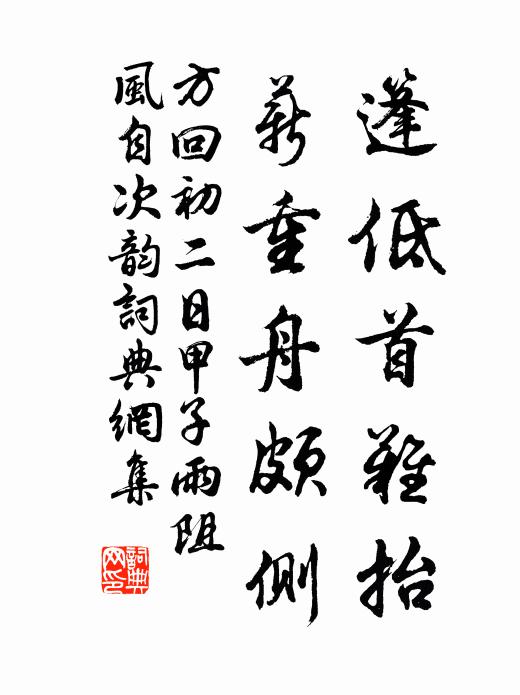 蓬低首難抬
薪重舟頗側
方回初二日甲子雨阻
風自次韵詞典網集
詞典
网印